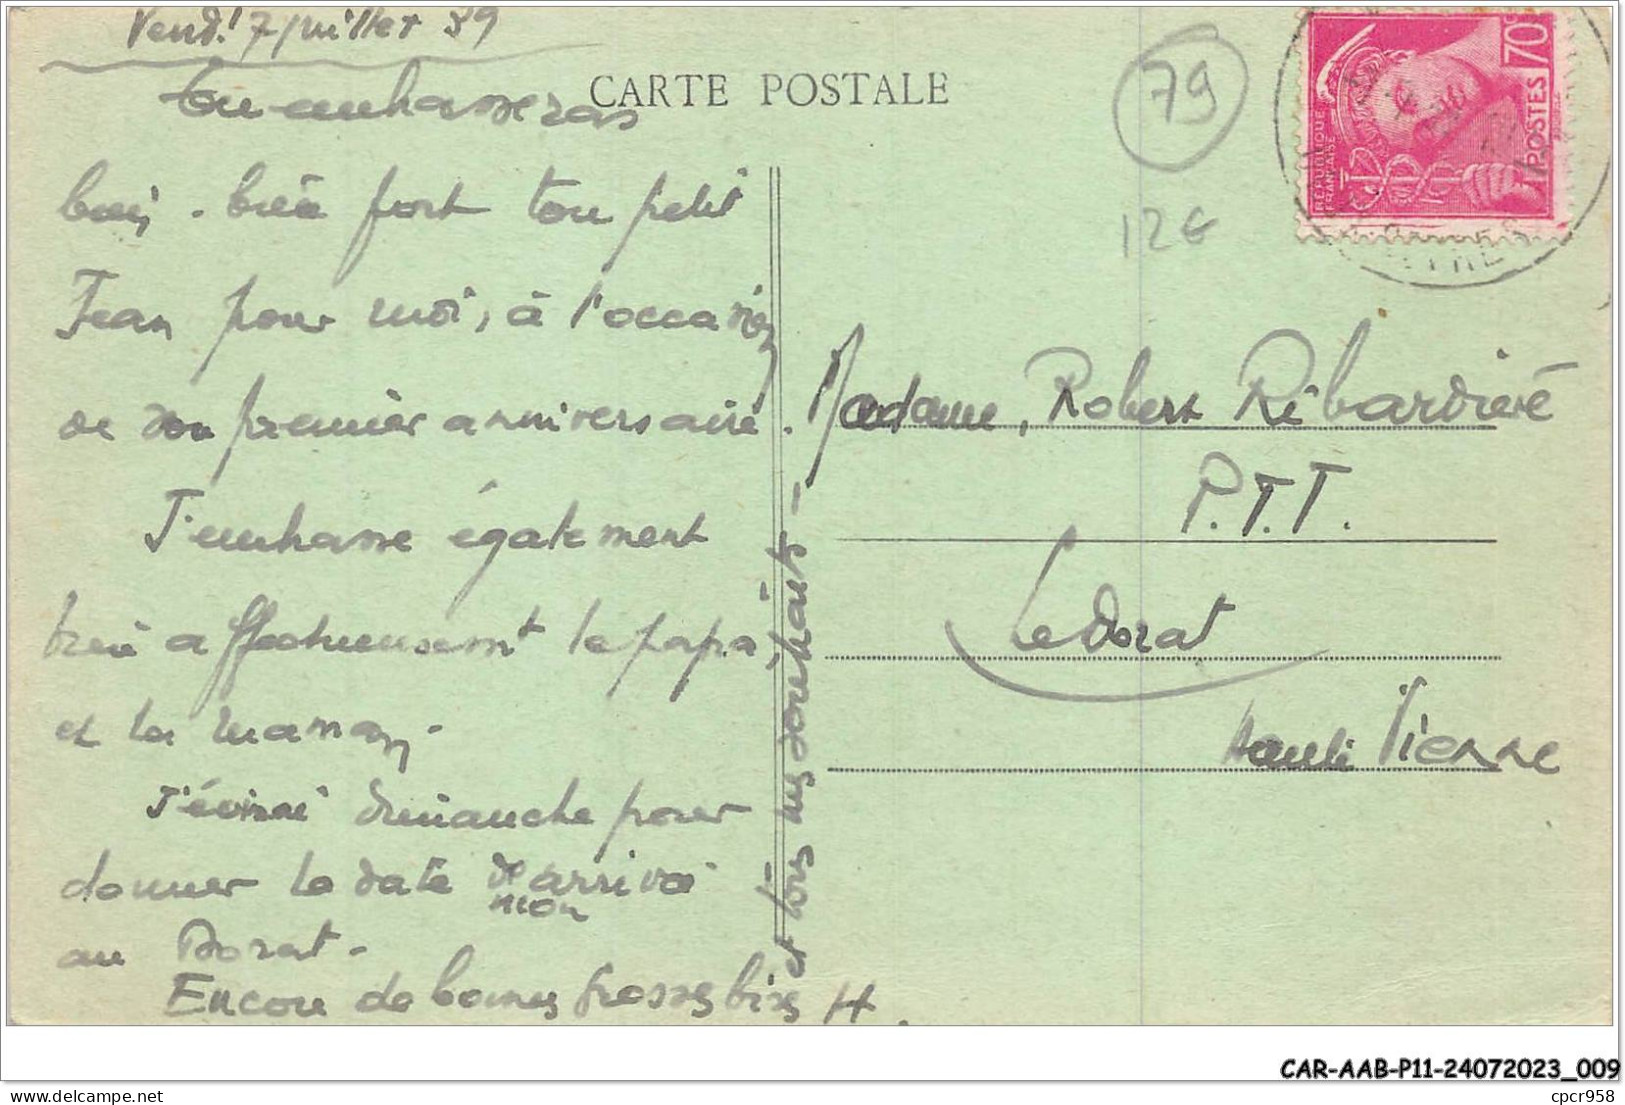 Vend. 7 juillet 39
CARTE POSTALE
Tu embrasseras
bien, bien fort ton petit
Jean pour moi, à l'occasion
de son premier anniversaire.
J'embrasse également
bien affectueusement le papa,
et la maman.
J'écrirai dimanche pour
donner la date de mon arrivée
au Dorat.
Encore de bonnes grosses bises
et tous mes souhaits - H.
79
12€
70c
POSTES
RÉPUBLIQUE
FRANÇAISE
Madame, Robert Ribardière
P.T.T.
Le Dorat
Haute Vienne
CAR-AAB-P11-24072023_009
delcampe.net
cpcr958